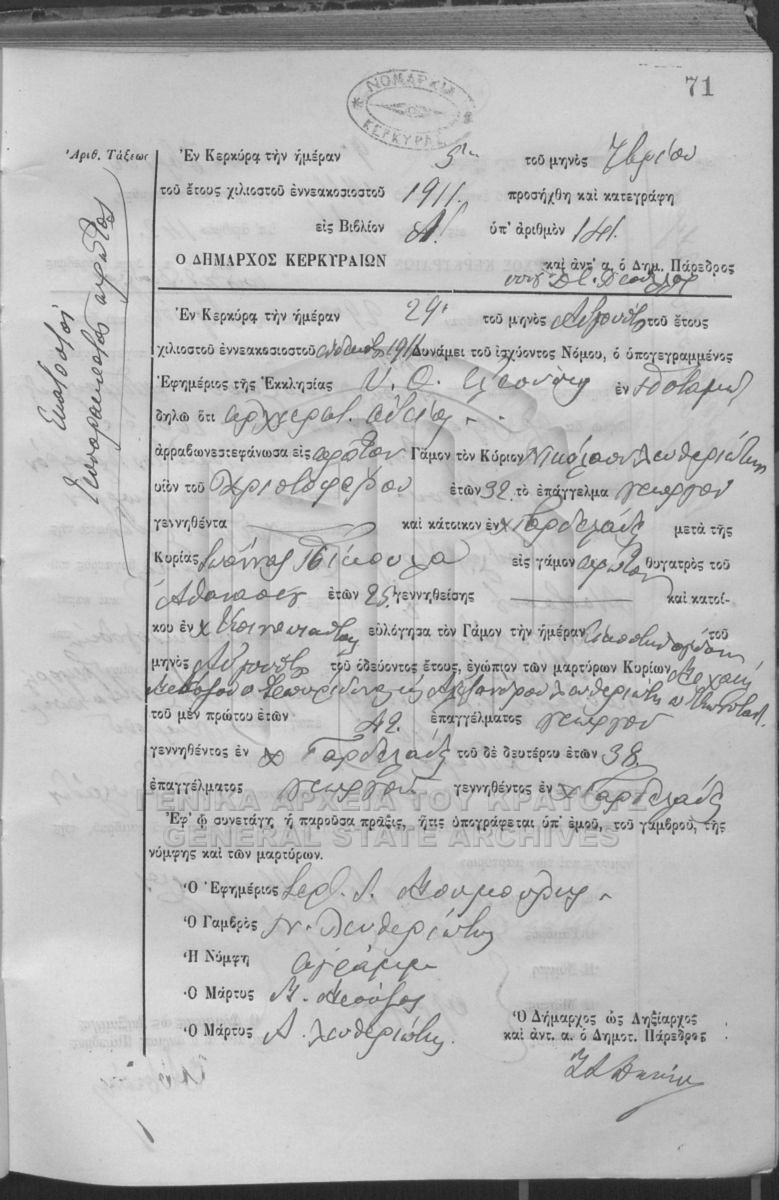 71
ΝΟΜΑΡΧΙΑ
ΚΕΡΚΥΡΑΣ
Ἀριθ. Τάξεως
Ἑκατοστὸν
πρῶτος
Ἐν Κερκύρᾳ τὴν ἡμέραν 5ην τοῦ μηνὸς 7βρίου
τοῦ ἔτους χιλιοστοῦ ἐννεακοσιοστοῦ 1911. προσήχθη καὶ κατεγράφη
εἰς Βιβλίον Α΄. ὑπ' ἀριθμὸν 141.
Ο ΔΗΜΑΡΧΟΣ ΚΕΡΚΥΡΑΙΩΝ καὶ ἀντ' α. ὁ Δημ. Πάρεδρος
Ἐν Κερκύρᾳ τὴν ἡμέραν 29 τοῦ μηνὸς Αὐγούστου τοῦ ἔτους
χιλιοστοῦ ἐννεακοσιοστοῦ 1911 Δυνάμει τοῦ ἰσχύοντος Νόμου, ὁ ὑπογεγραμμένος
Ἐφημέριος τῆς Ἐκκλησίας Υ. Θ. Ἐλεούσης ἐν Ποταμῷ
δηλῶ ὅτι ἀρχιερατ. ἀδείᾳ
ἀρραβωνεστεφάνωσα εἰς πρῶτον Γάμον τὸν Κύριον Νικόλαον Λευθεριώτην
υἱὸν τοῦ Χριστοφόρου ἐτῶν 32 τὸ ἐπάγγελμα γεωργοῦ
γεννηθέντα καὶ κάτοικον ἐν χ Γαρδελάδες μετὰ τῆς
Κυρίας Ἰωάννας εἰς γάμον πρῶτον θυγατρὸς τοῦ
Ἀθανασίου ἐτῶν 25 γεννηθείσης καὶ κατοί-
κου ἐν χ εὐλόγησα τὸν Γάμον τὴν ἡμέραν τοῦ
μηνὸς Αὐγούστου τοῦ ὁδεύοντος ἔτους, ἐνώπιον τῶν μαρτύρων Κυρίων
Σπυρίδωνος καὶ Ἀλεξάνδρου Λευθεριώτη
τοῦ μὲν πρώτου ἐτῶν 42 ἐπαγγέλματος γεωργοῦ
γεννηθέντος ἐν χ Γαρδελάδες τοῦ δὲ δευτέρου ἐτῶν 38
ἐπαγγέλματος γεωργοῦ γεννηθέντος ἐν χ Γαρδελάδες
ΓΕΝΙΚΑ ΑΡΧΕΙΑ ΤΟΥ ΚΡΑΤΟΥΣ
Ἐφ' ᾧ συνετάγη ἡ παροῦσα πρᾶξις, ἥτις ὑπογράφεται ὑπ' ἐμοῦ, τοῦ γαμβροῦ, τῆς
GENERAL STATE ARCHIVES
νύμφης καὶ τῶν μαρτύρων.
Ὁ Ἐφημέριος
Ὁ Γαμβρὸς Ν. Λευθεριώτης
Ἡ Νύμφη ἀγράμμ.
Ὁ Μάρτυς
Ὁ Μάρτυς Α. Λευθεριώτης
Ὁ Δήμαρχος ὡς Ληξίαρχος
καὶ ἀντ. α. ὁ Δημοτ. Πάρεδρος